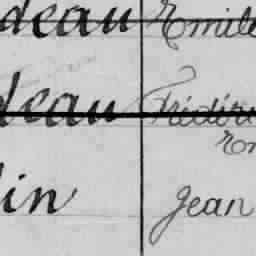 deau Emile
deau Frédéric
Em
lin Jean